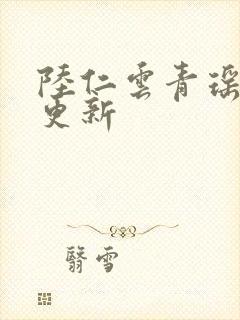 陸仁雲青瑶
更新
翳雪